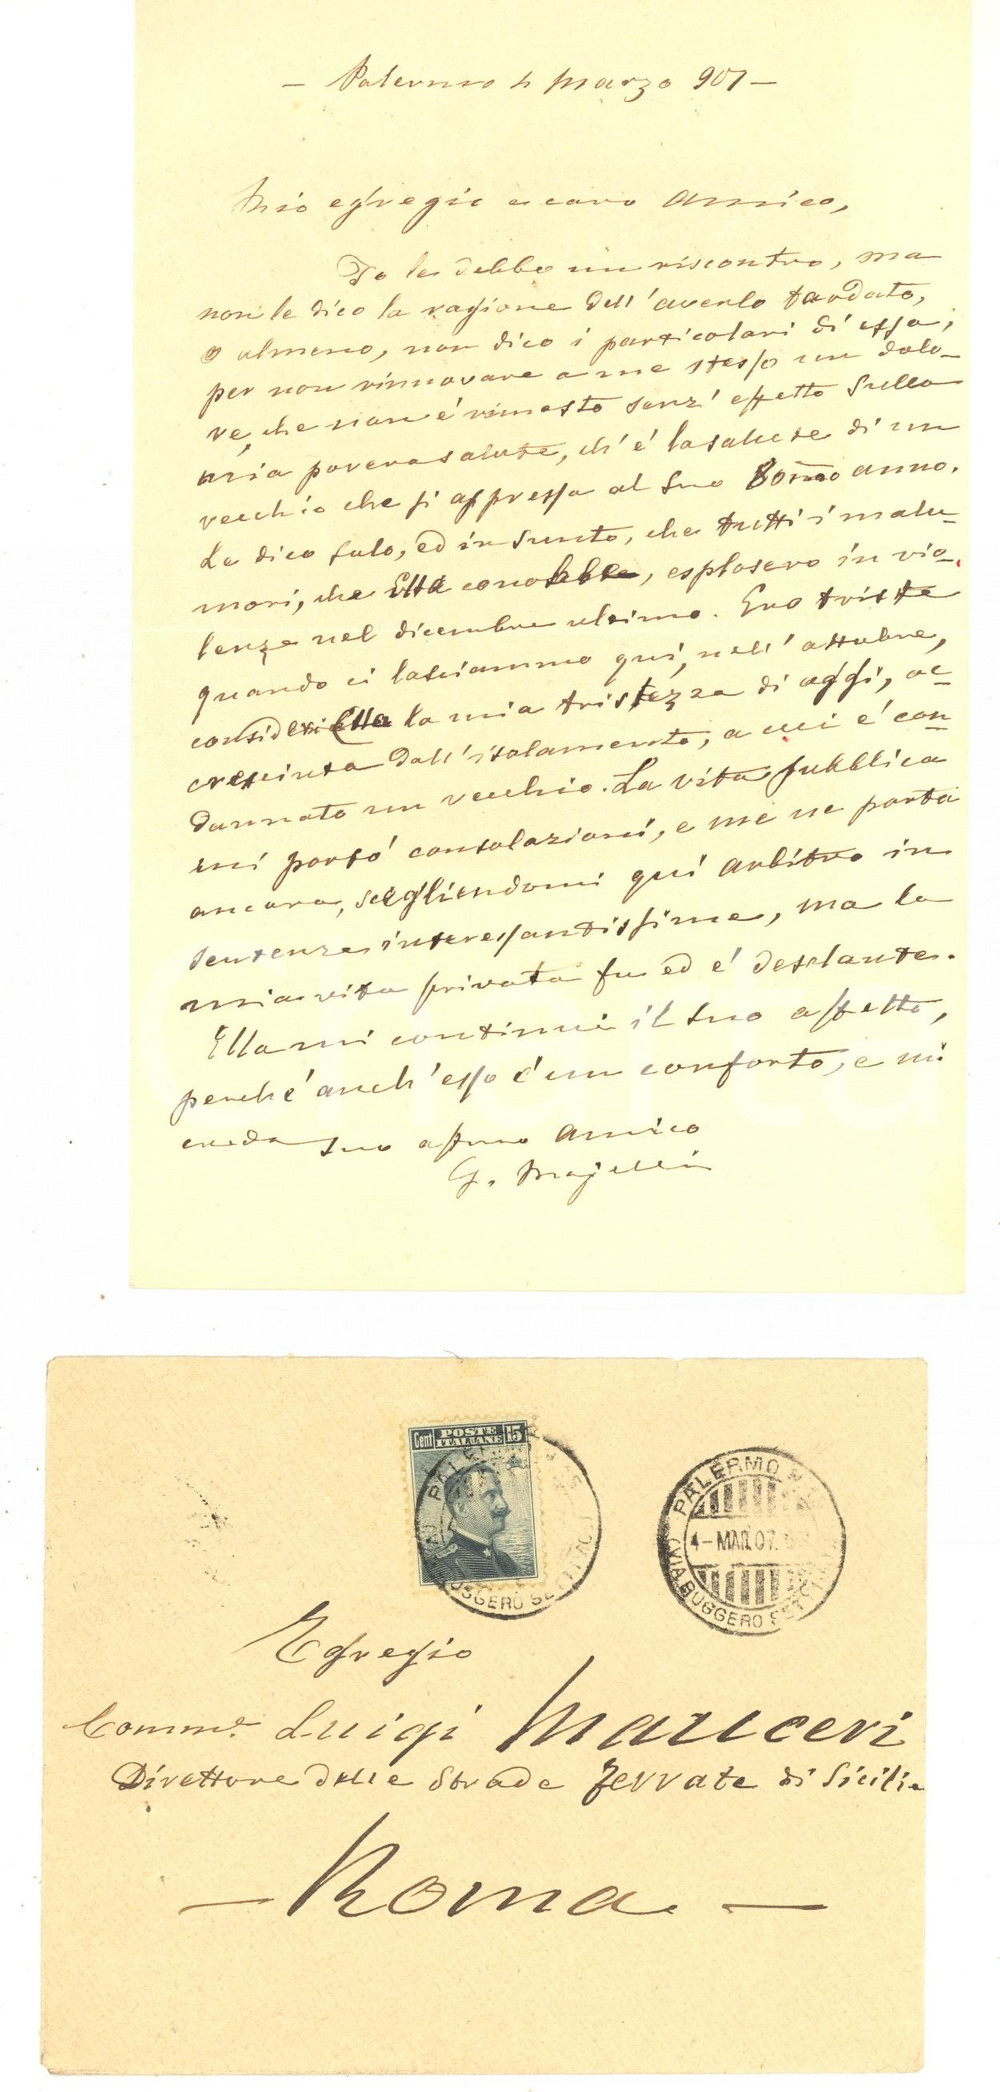 — Palermo 4 marzo 907 —
Mio egregio e caro Amico,
Io le debbo un riscontro, ma
non le dico la ragione dell'averlo tardato,
o almeno, non dico i particolari di essa,
per non rinnovare a me stesso un dolo-
re, che non è rimasto senz'effetto sulla
mia povera salute, ch'è la salute di un
vecchio che si appressa al suo 80mo anno.
Le dico solo, ed in sunto, che tutti i malu-
mori, che Ella conobbe, esplosero in vio-
lenze nel dicembre ultimo. Ero triste
quando ci lasciammo qui, nell'ottobre,
consideri Ella la mia tristezza di oggi, ac-
cresciuta dall'isolamento, a cui è con-
dannato un vecchio. La vita pubblica
mi portò consolazioni, e me ne porta
ancora, scegliendomi qui arbitro in
sentenze interessantissime, ma la
mia vita privata fu ed è desolante.
Ella mi continui il suo affetto,
perché anch'esso è un conforto, e mi
creda suo affmo Amico
G.
POSTE ITALIANE
Cent 15
PALERMO
RUGGERO SETTIMO
PALERMO
4-MAR.07
(VIA RUGGERO SETTIMO)
Egregio
Comme Luigi Mauceri
Direttore delle Strade Ferrate di Sicilia
— Roma —